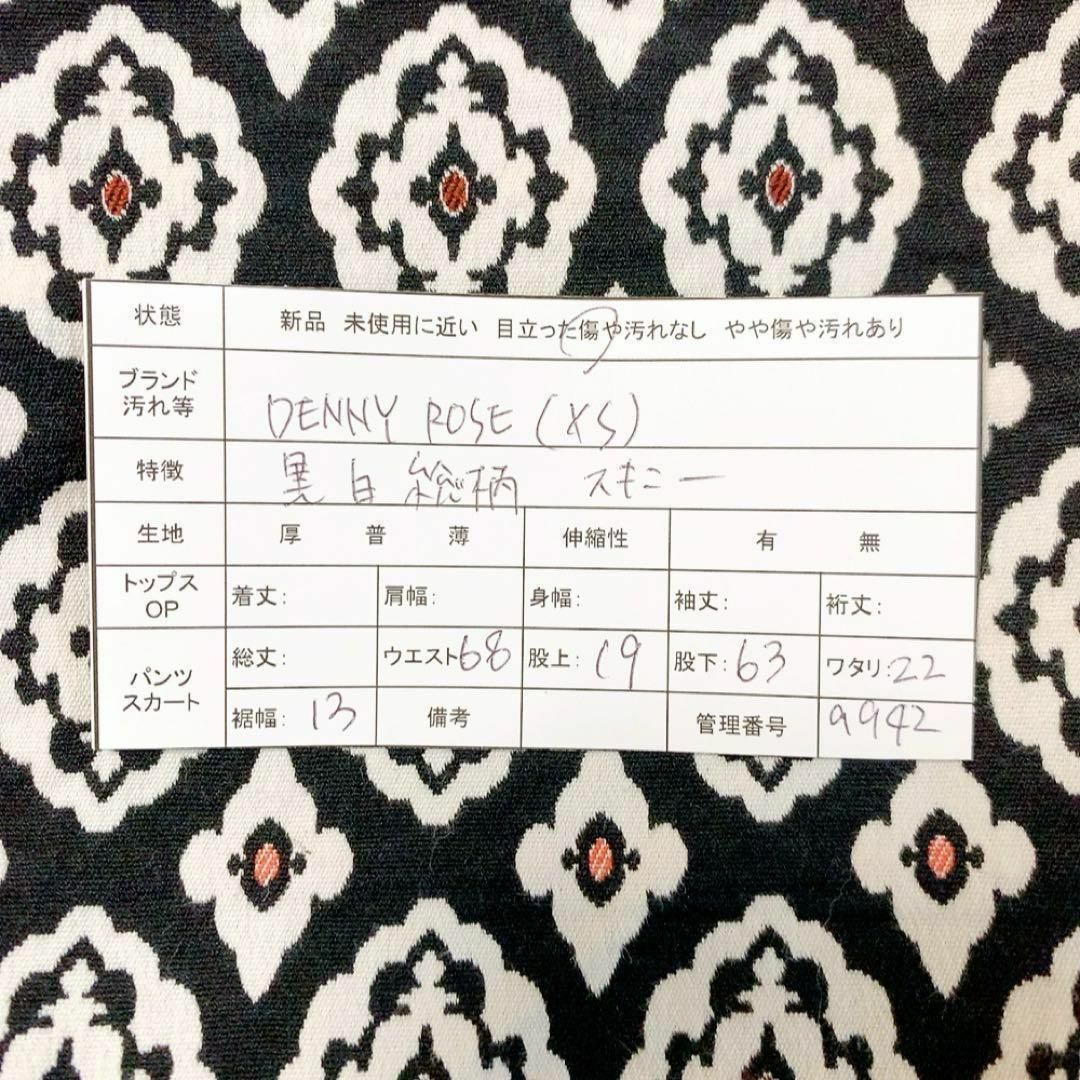 状態 新品 未使用に近い 目立った傷や汚れなし やや傷や汚れあり
ブランド
汚れ等 DENNY ROSE (XS)
特徴 黒白総柄 スキニー
生地 厚 普 薄 伸縮性 有 無
トップス
OP 着丈: 肩幅: 身幅: 袖丈: 裄丈:
パンツ
スカート 総丈: ウエスト68 股上: 19 股下: 63 ワタリ: 22
裾幅: 13 備考 管理番号 9942